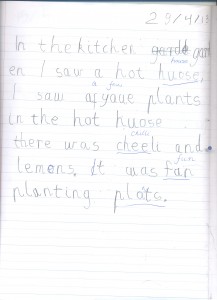 29/4/13
In the kitchen gard
en I saw a hot huose.
house
I saw afyoue plants
a few
in the hot huose
there was cheeli and
chilli
lemons. It was fan
fun
planting plats.
n